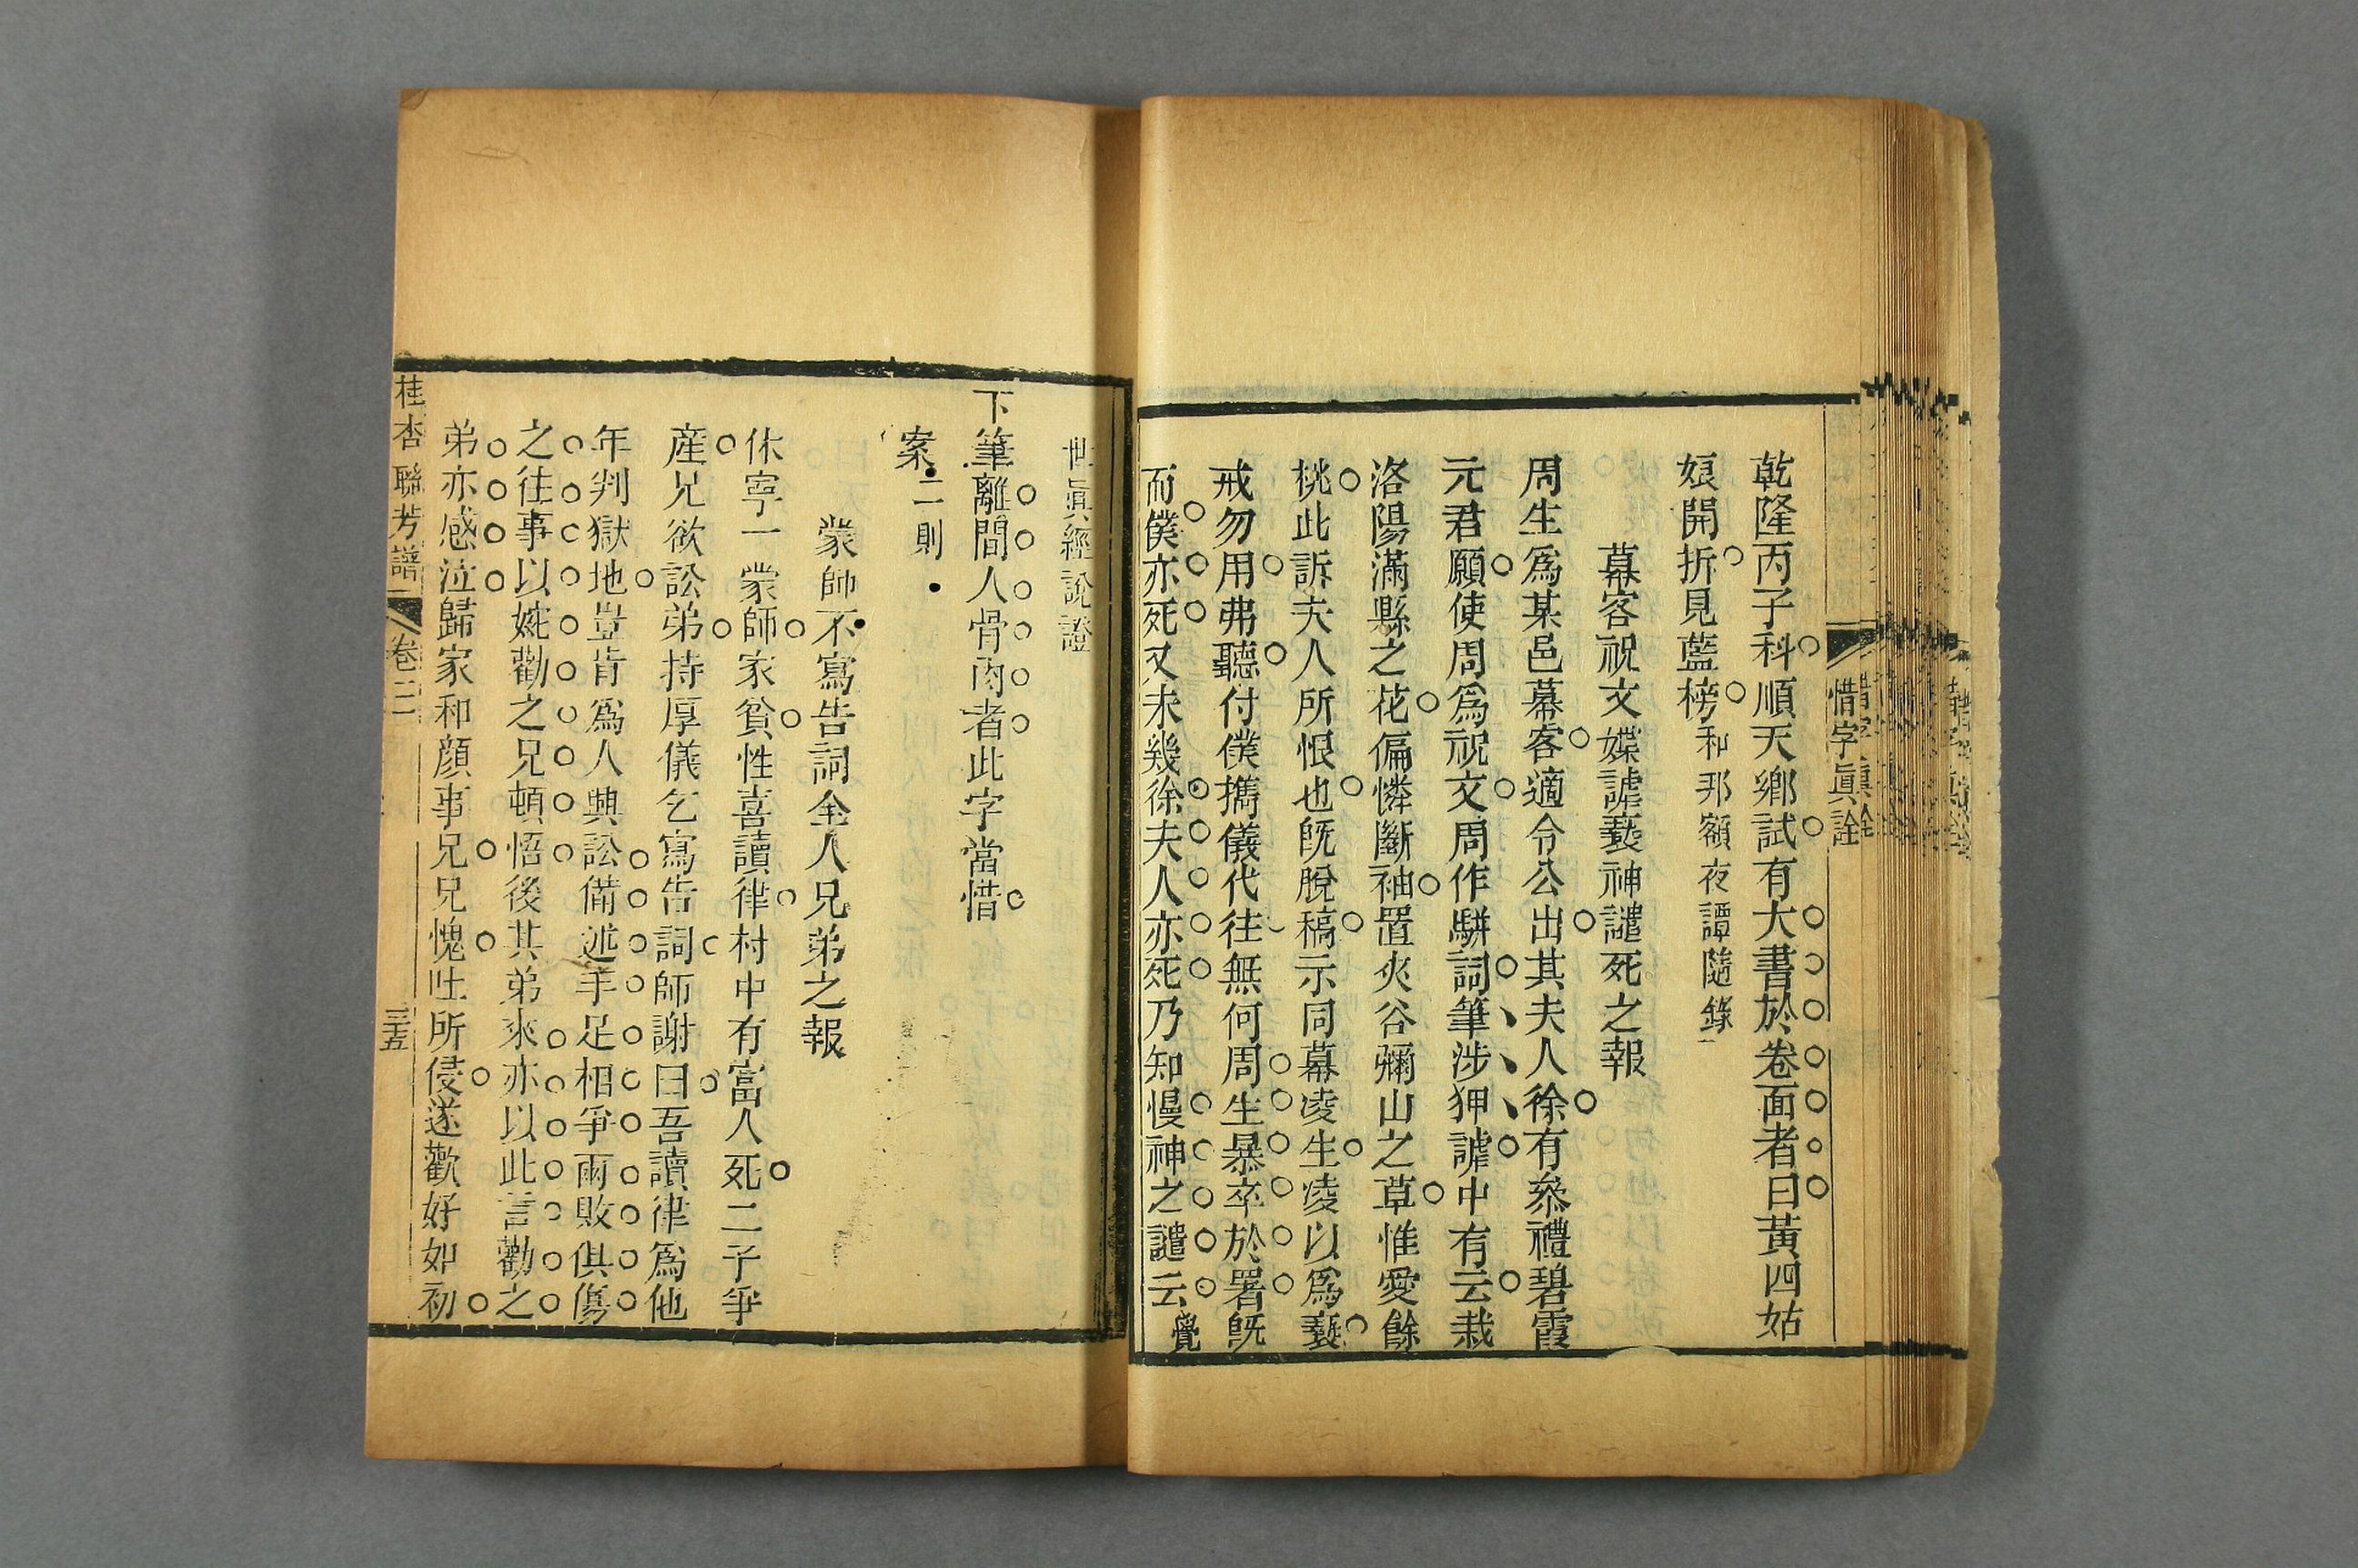 惜字眞詮
乾隆丙子科順天鄉試有大書於卷面者曰黃四姑
娘開折見藍榜和邦額夜譚隨錄
幕客祝文媟謔䙝神譴死之報
周生爲某邑幕客適令公出其夫人徐有叅禮碧霞
元君願使周爲祝文周作駢詞筆涉狎謔中有云栽
洛陽滿縣之花偏憐斷袖置夾谷彌山之草惟愛餘
桃此訴夫人所恨也旣脫稿示同幕凌生凌以爲䙝
戒勿用弗聽付僕攜儀代往無何周生暴卒於署旣
而僕亦死又未幾徐夫人亦死乃知慢神之譴云覺
世眞經說證
下筆離間人骨肉者此字當惜
案二則
蒙師不寫告詞全人兄弟之報
休寧一蒙師家貧性喜讀律村中有富人死二子爭
産兄欲訟弟持厚儀乞寫告詞師謝曰吾讀律爲他
年判獄地豈肯爲人興訟備述手足相爭兩敗俱傷
之往事以婉勸之兄頓悟後其弟來亦以此言勸之
弟亦感泣歸家和顔事兄兄愧吐所侵遂歡好如初
桂杏聯芳譜 卷三 三五